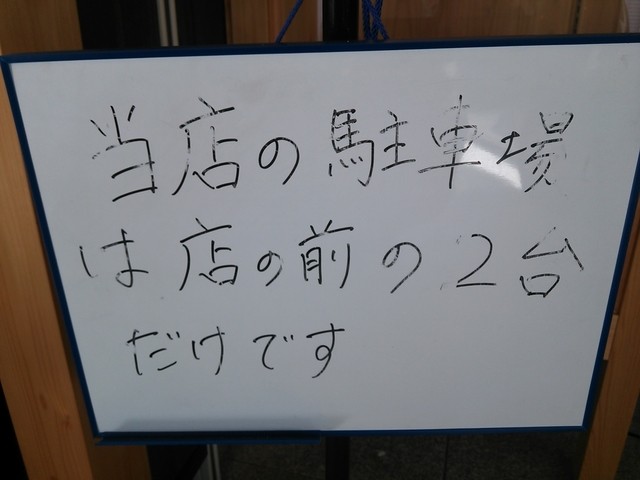 当店の駐車場
は店の前の2台
だけです